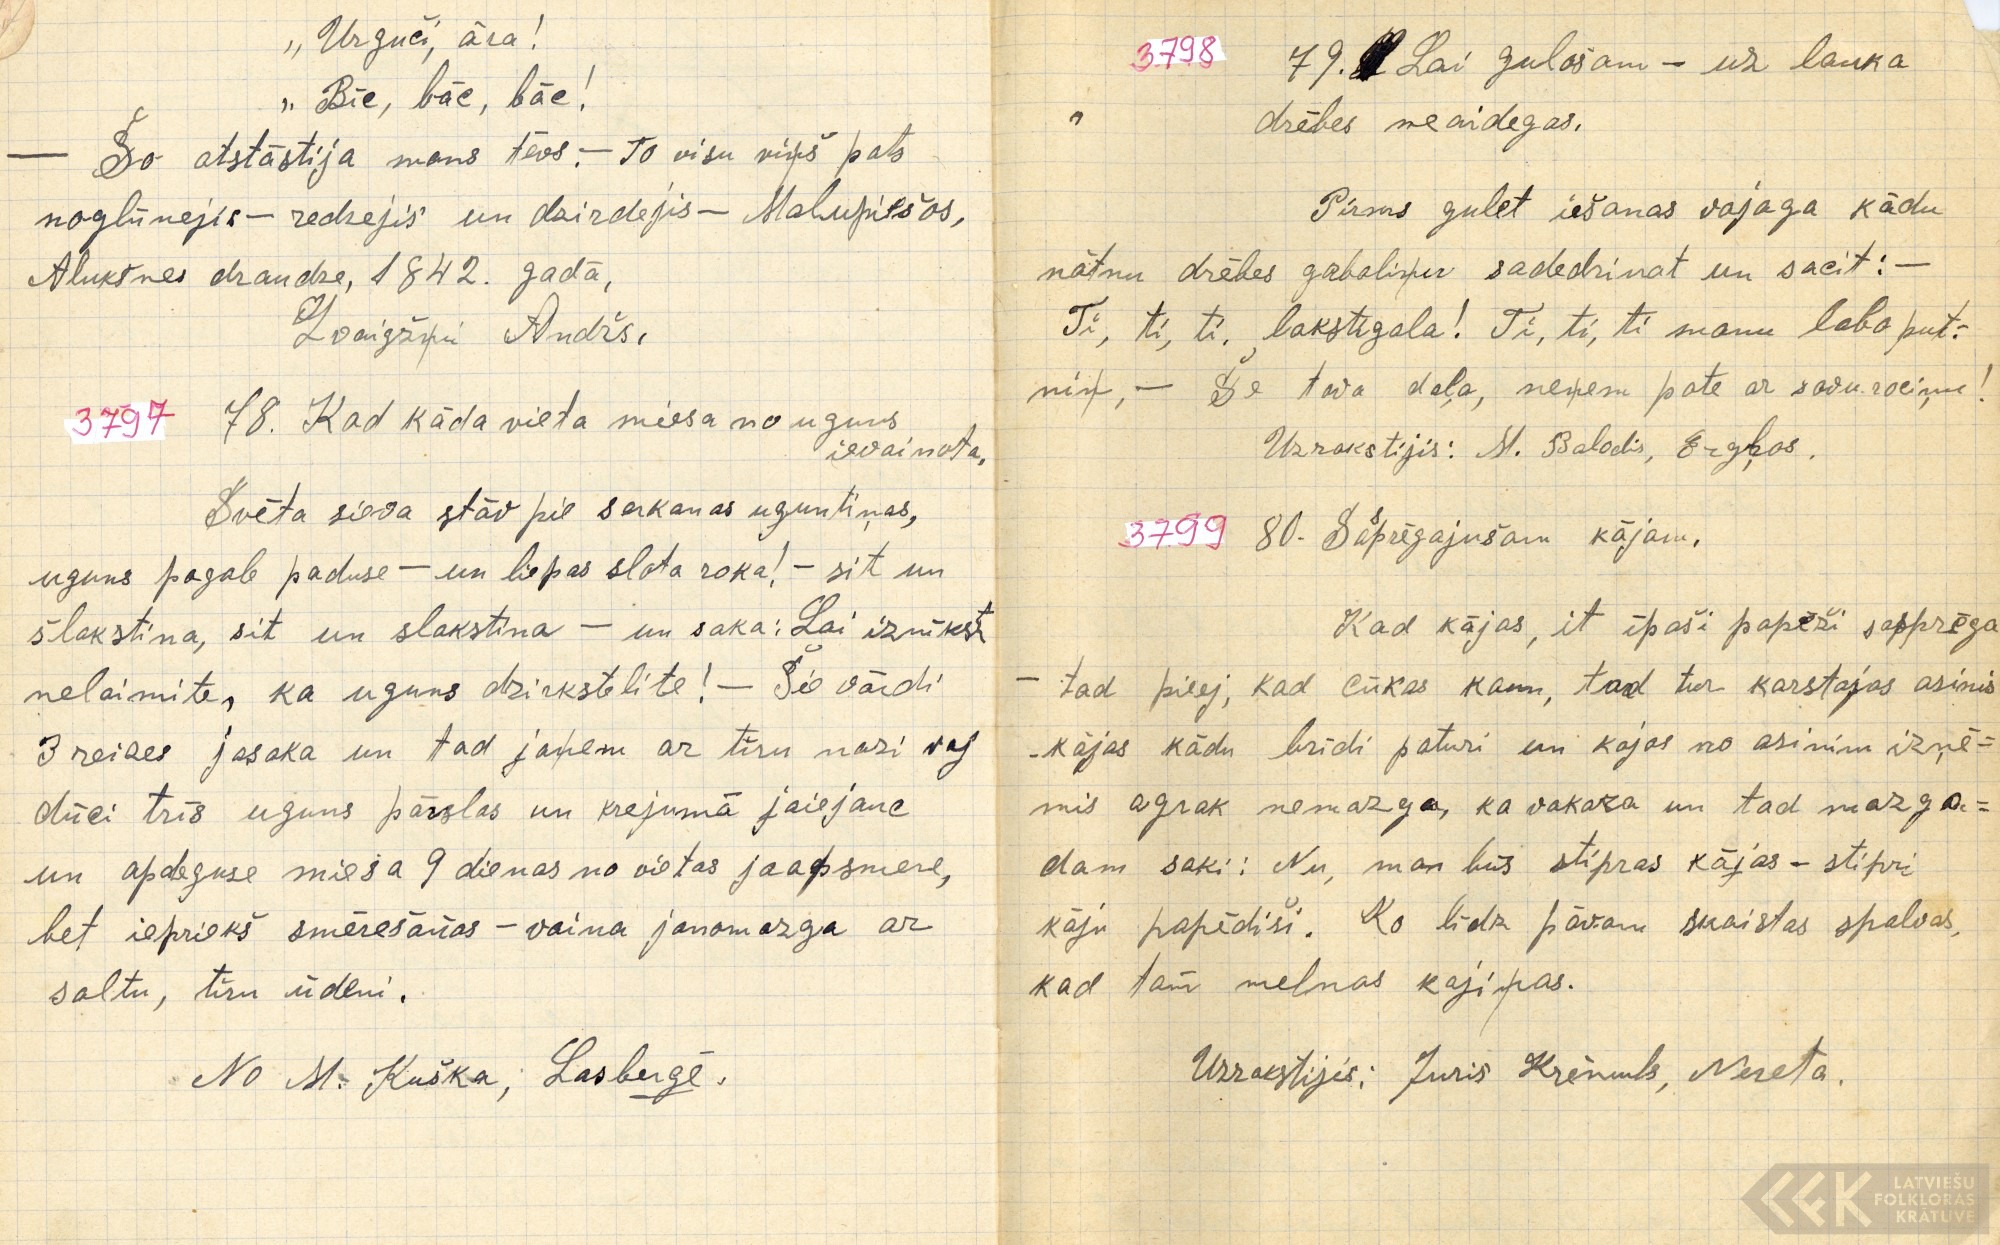 „ Urguči, āra!
„ Bāc, bāc, bāc!
— Šo atstāstija mans tēvs.— To visu viņš pats
noglūnejis — redzejis un dzirdejis — Malupiešos,
Aluksnes draudze, 1842. gadā,
Zvaigžņu Andžs.
3797 78. Kad kāda vieta miesa no uguns
ievainota.
Svēta sieva stāv pie sarkanas uguntiņas,
uguns pagale paduse — un liepas slota roka! — sit un
šlakstina, sit un slakstina — un saka: Lai iznīkst
nelaimite, ka uguns dzirkstelite! — Šie vārdi
3 reizes jasaka un tad jaņem ar tīru nazi vaj
dūci trīs uguns pārslas un krejumā jaiejauc
un apdeguse miesa 9 dienas no vietas jaapsmere,
bet iepriekš smērešanas — vaina janomazga ar
saltu, tīru ūdeni.
No M. Kuška, Lasbergē.
3798 79. Lai gulošam — uz lauka
„ drēbes neaizdegas.
Pirms gulet iešanas vajaga kādu
nātnu drēbes gabaliņu sadedzinat un sacit: —
Ti, ti, ti, lakstigala! Ti, ti, ti manu labo put-
niņ, — Še tava daļa, neņem pate ar savu rociņu!
Uzrakstijis: M. Balodis, Ergļos.
3799 80. Sasprēgajušam kājam.
Kad kājas, it īpaši papēži sasprēga
— tad pieej, kad cūkas kauu, tad tur karstajas asinis
- kājas kādu brīdi paturi un kajas no asinim izņē=
mis agrak nemazga, ka vakara un tad mazga=
dam saki: Nu, man būs stipras kājas — stipri
kāju papēdiši. Ko līdz pāvam skaistas spalvas,
kad tam melnas kajiņas.
Uzrakstijis: Juris Krēmuls, Nereta.
LATVIEŠU
FOLKLORAS
KRĀTUVE